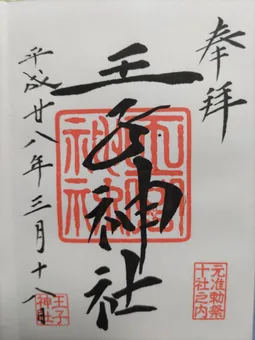 奉拝
王子神社
平成廿八年三月十八日
元准勅祭
十社之内
王子
神社